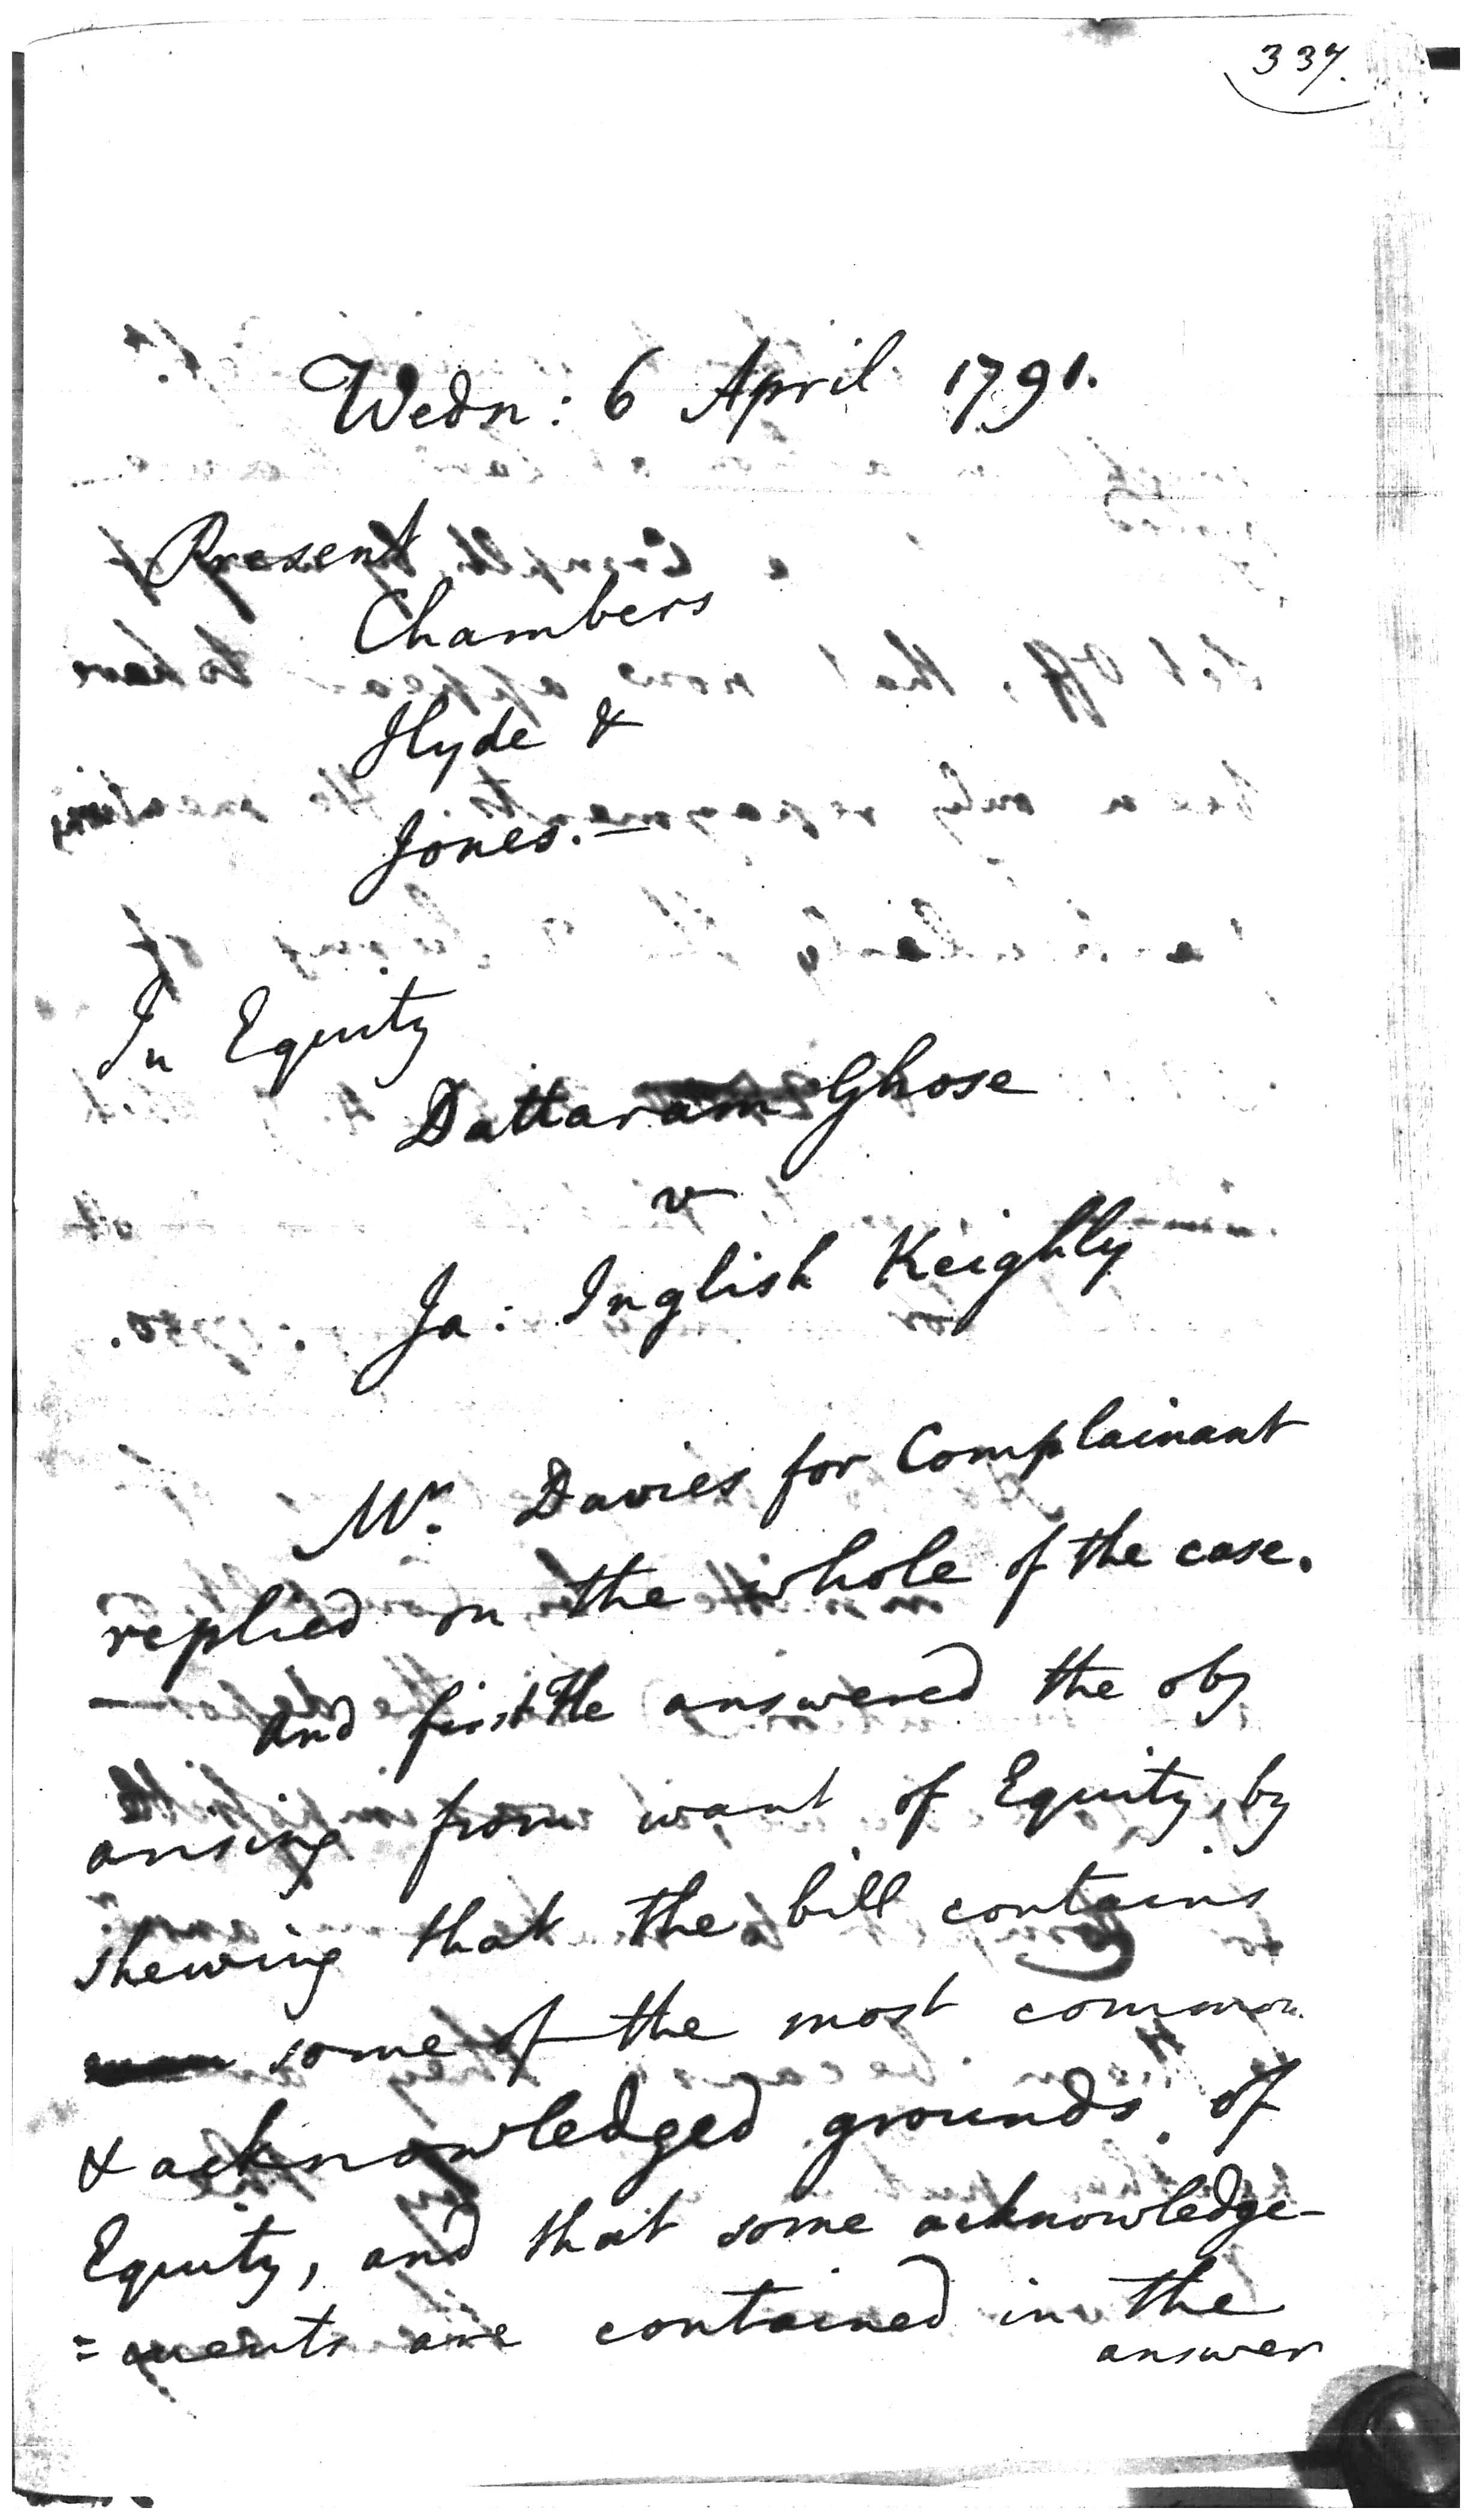 337.
Wedn: 6 April 1791.
Present
Chambers
Hyde &
Jones. —
In Equity
Dattaram Ghose
v
Ja: Inglish Keighly
Mr. Davies for Complainant
replied on the whole of the case.
— and first He answered the obj
arising from want of Equity, by
shewing that the bill contains
some of the most common
& acknowledged grounds of
Equity, and that some acknowledge-
= ments are contained in the
answer